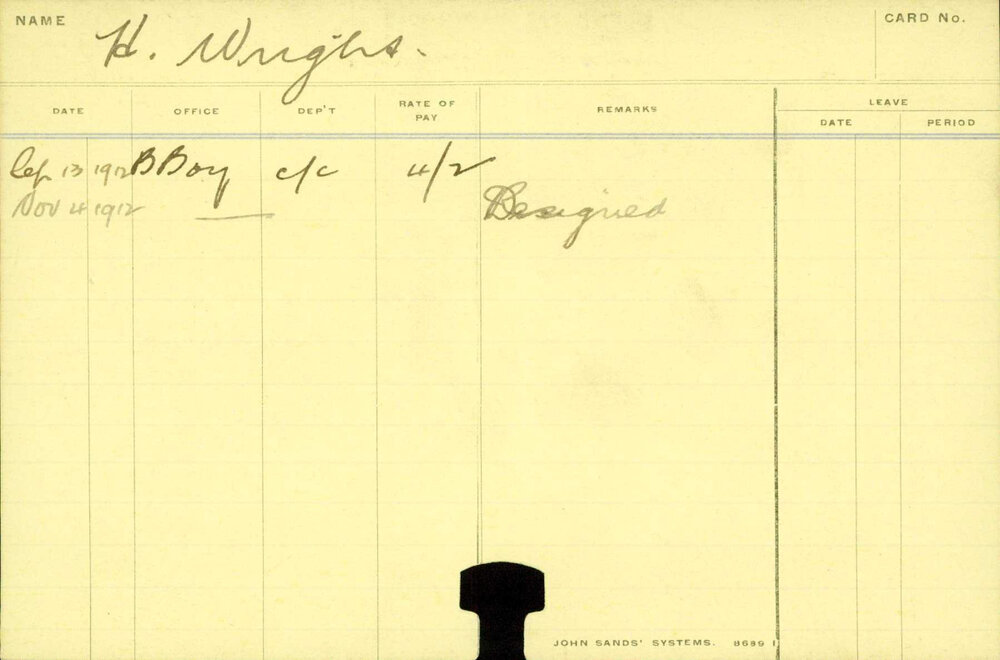 NAME H. Wright. CARD No.
DATE OFFICE DEP'T RATE OF PAY REMARKS LEAVE
DATE PERIOD
Sep 13 1912 B Boy c/c 4/2
Nov 4 1912 — Resigned
JOHN SANDS' SYSTEMS. 8689 1